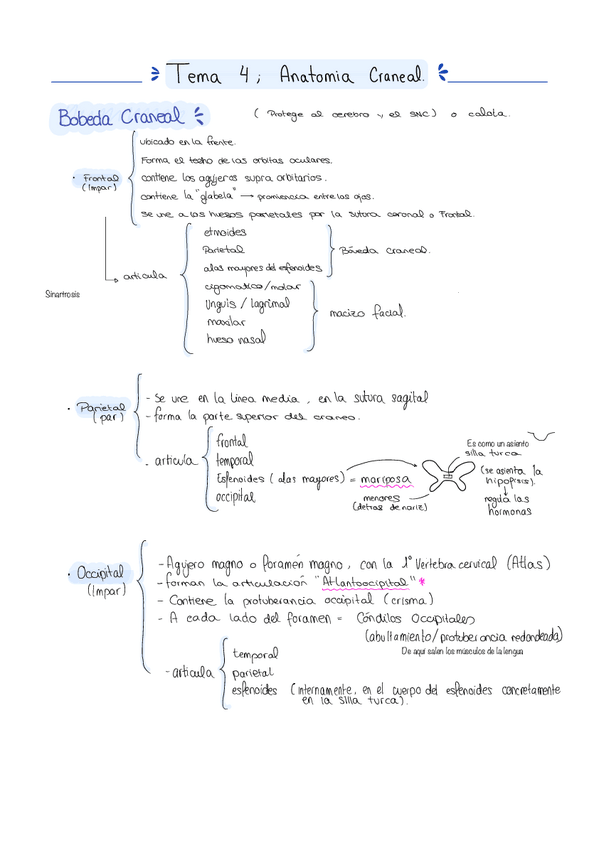 Tema 4; Anatomia Craneal.
Bobeda Craneal ( Protege al cerebro y el SNC) o calota.
· Frontal
(Impar)
ubicado en la frente.
Forma el techo de las orbitas oculares.
contiene los agujeros supra orbitarios.
contiene la "glabela" → prominencia entre los ojos.
se une a los huesos parietales por la sutura coronal o Frontal.
articula
etmoides
Parietal
alas mayores del esfenoides
Bóveda craneal.
cigomatico/molar
Unguis / lagrimal
maxilar
hueso nasal
macizo facial.
Sinartrosis
· Parietal
(par)
- Se une en la linea media, en la sutura sagital
- forma la parte superior del craneo.
. articula
frontal
temporal
Esfenoides (alas mayores) = mariposa
occipital
menores
(detras de nariz)
Es como un asiento
silla turca
(se asienta la
hipofisis).
regula las
hormonas
· Occipital
(Impar)
- Agujero magno o Foramen magno, con la 1º Vertebra cervical (Atlas)
- forman la articulación "Atlantoocipital" *
- Contiene la protuberancia occipital (crisma)
- A cada lado del foramen = Cóndilos Occipitales
(abultamiento/protuberancia redondeada)
De aquí salen los músculos de la lengua
- articula
temporal
parietal
esfenoides (internamente, en el cuerpo del esfenoides concretamente
en la silla turca).